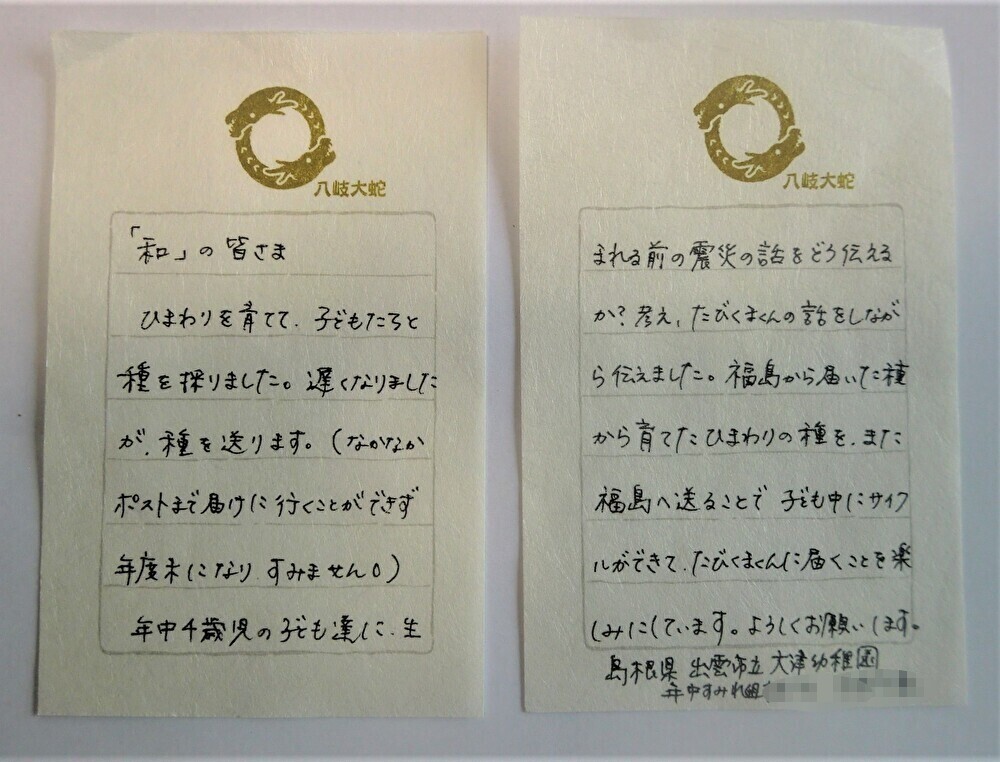 八岐大蛇
「和」の皆さま
ひまわりを育てて、子どもたちと
種を採りました。遅くなりました
が、種を送ります。(なかなか
ポストまで届けに行くことができず
年度末になり すみません。)
年中4歳児の子ども達に、生
八岐大蛇
まれる前の震災の話をどう伝える
か?考え、たびくまくんの話をしなが
ら伝えました。福島から届いた種
から育てたひまわりの種を、また
福島へ送ることで 子ども中にサイク
ルができて、たびくまくんに届くことを楽
しみにしています。よろしくお願いします。
島根県 出雲市立 大津幼稚園
年中すみれ組